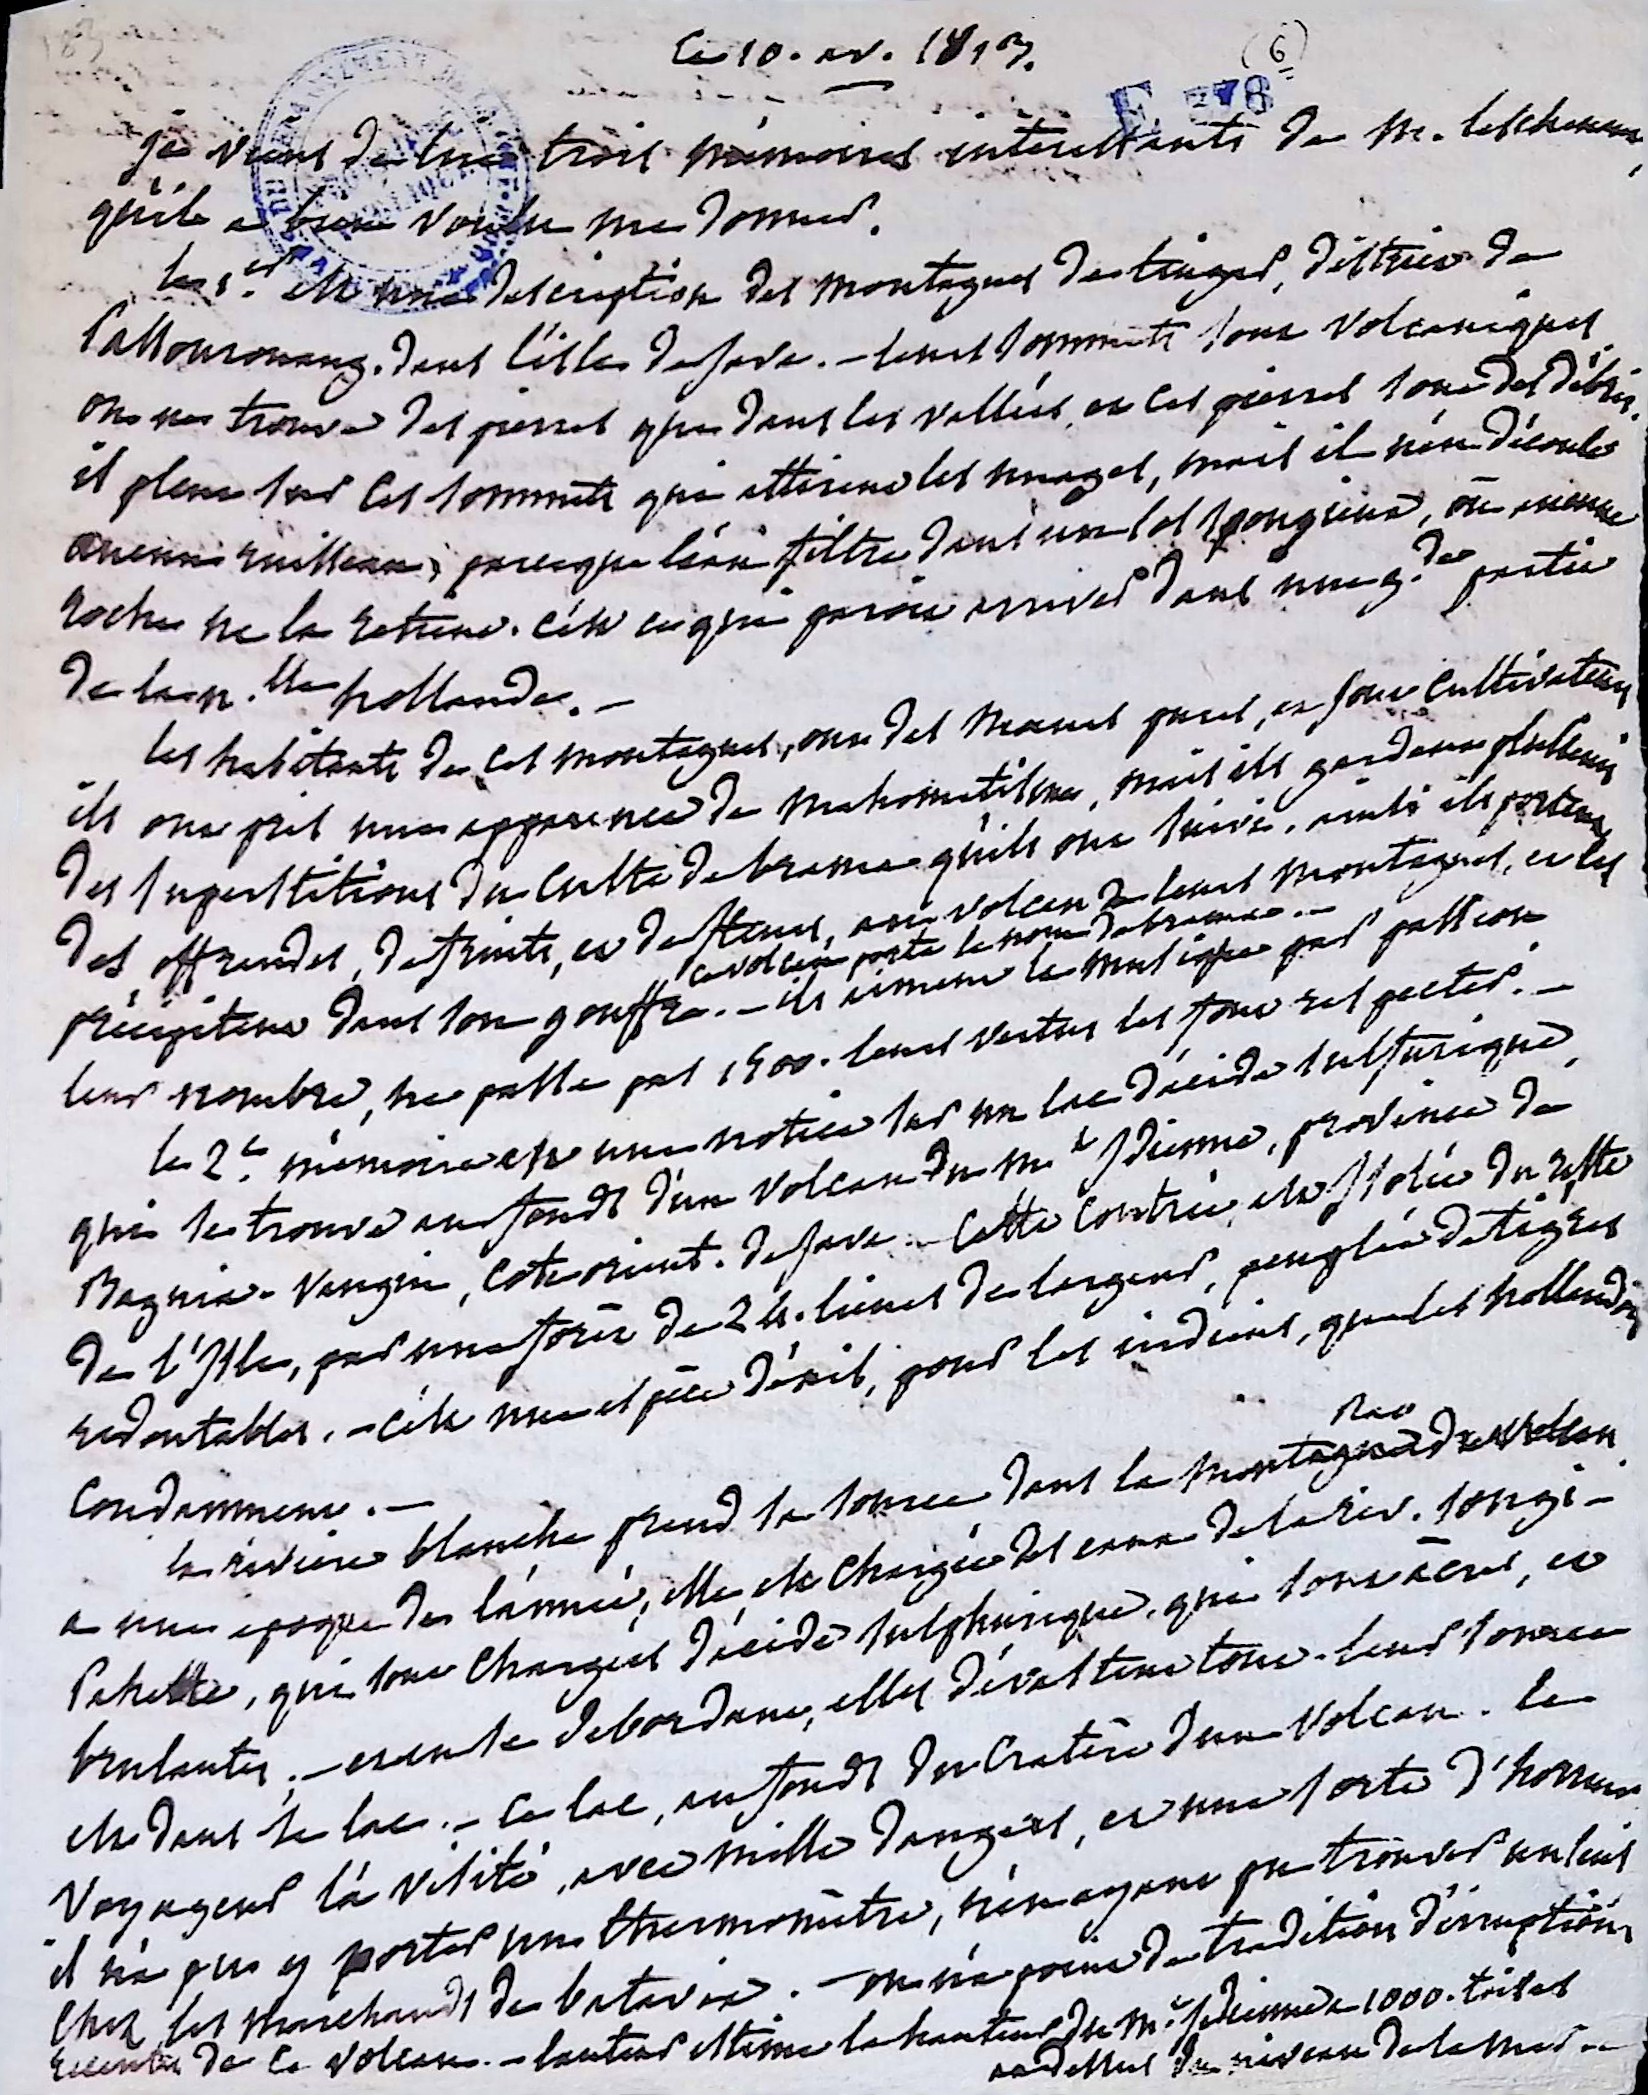 Ce 10. av. 1813.
(6)
E 278
je viens de lire trois mémoires intéressants de M. leschenau,
qu'il a bien voulu me donner.
le 1.er est une description des montagnes de tinger, district de
Passourouang. dans l'isle de Java. – leurs sommets sont volcaniques
on ne trouve des pierres que dans les vallées, et ces pierres sont des débris.
il pleut sur ces sommets qui attirent les nuages, mais il n'en découle
aucun ruisseau, parceque l'eau filtre dans un sol spongieux, où aucune
roche ne la retient. c'est ce qui paroit arriver dans une g.de partie
de la n.lle hollande. –
les habitants de ces montagnes, ont des moeurs pures, et sont cultivateurs
ils ont pris une apparence de mahométisme, mais ils gardent plusieurs
des superstitions du culte de brama qu'ils ont suivi. ainsi ils portent
des offrandes, de fruits, et de fleurs, au volcan de leurs montagnes, et les
ce volcan porte le nom de brama. –
précipitent dans son gouffre. – ils aiment la musique par passion
leur nombre, ne passe pas 1500. leurs vertus les font respecter. –
le 2.e mémoire est une notice sur un lac d'acide sulfurique,
qui se trouve au fonds d'un volcan du m.t Idienne, province de
Bagnia-Vangni, cote orient. de Java. – Cette contrée, est isolée du reste
de l'Isle, par une forêt de 24. lieues de largeur, peuplée de tigres
redoutables. – c'est une espèce d'exil, pour les indiens, que les hollandois
condamnent. –
la rivière blanche prend sa source dans la montagne
a une epoque de l'année, elle est chargée des eaux de la riv. songi-
Pahette, qui sont chargées d'acide sulphurique, qui sont âcres, et
brulantes, – et en se debordant, elles dévastent tout. leur source
est dans le lac. – ce lac, au fonds du cratère d'un volcan. le
voyageur l'a visité, avec mille dangers, et une sorte d'horreur
il n'a pu y porter un thermomètre, n'en ayant pu trouver un seul
chez les marchands de batavia. – on n'a point de tradition d'irruptions
recentes de ce volcan. – l'auteur estime la hauteur du m.t Idienne a 1000. toises
au dessus du niveau de la mer –